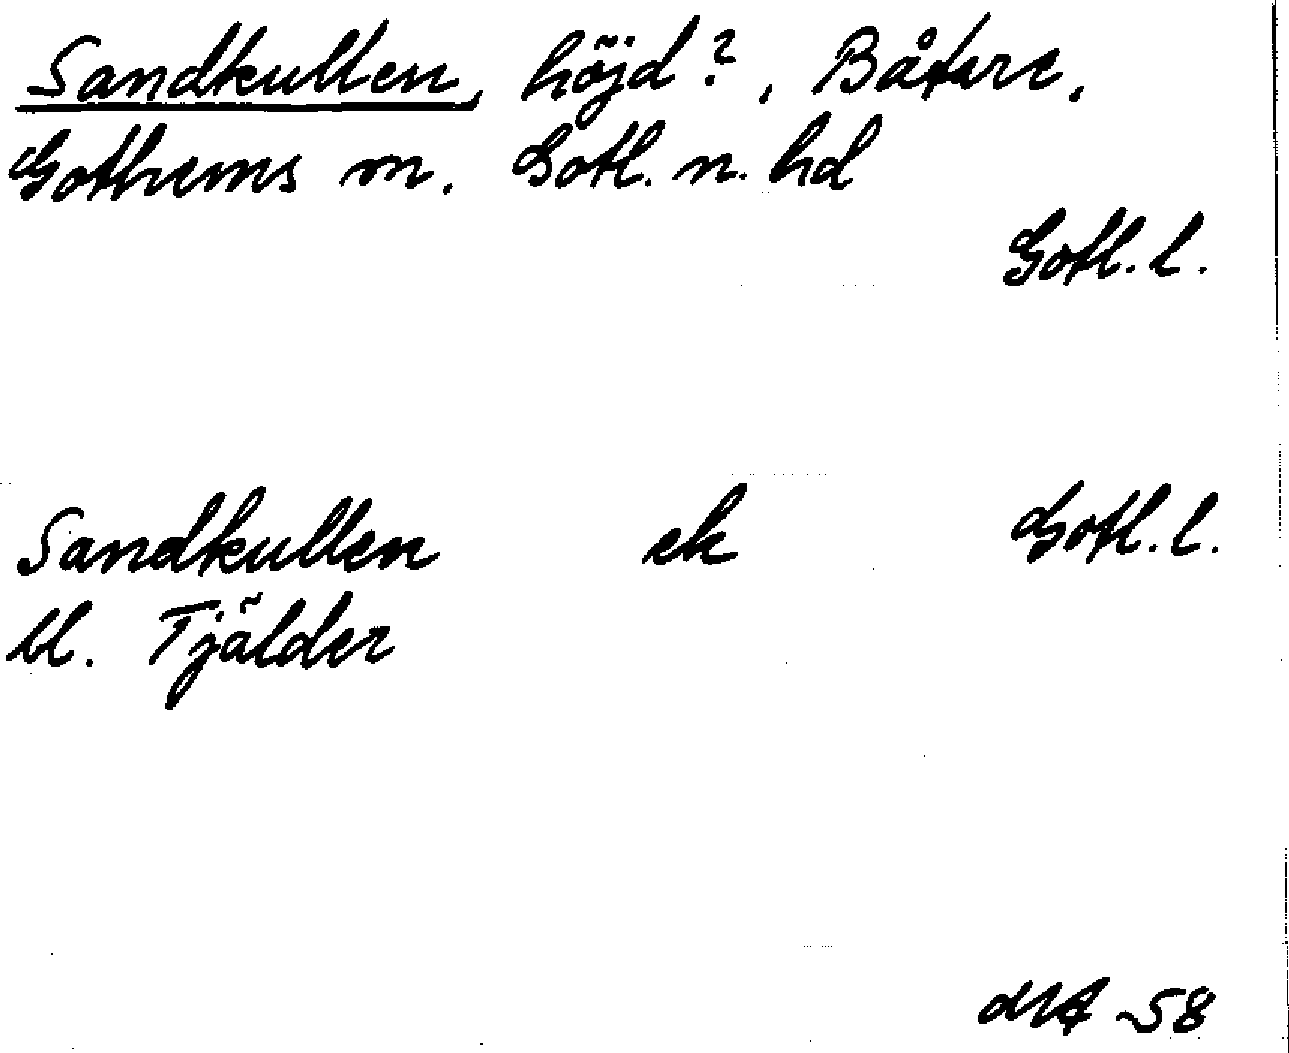 Sandkullen, höjd?, Båtare,
Gothems sn. Gotl. n. hd
Gotl. l.
Sandkullen ek Gotl. l.
Ll. Tjälder
-58